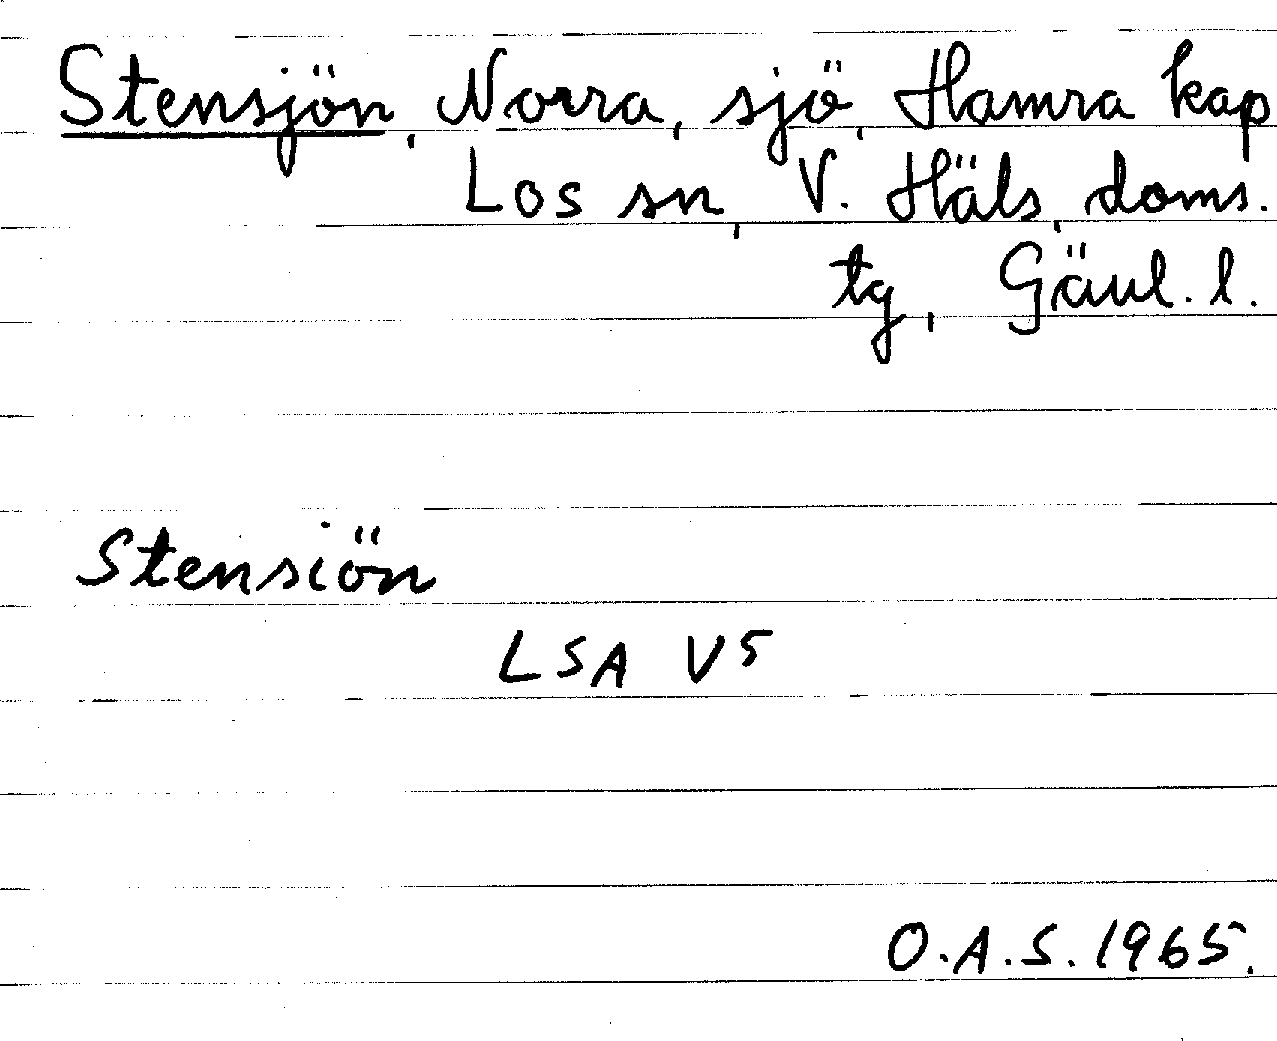 Stensjön, Norra, sjö, Hamra kap
Los sn, V. Häls, doms.
tg, Gävl. l.
Stensiön
LSA V5
O.A.S. 1965.